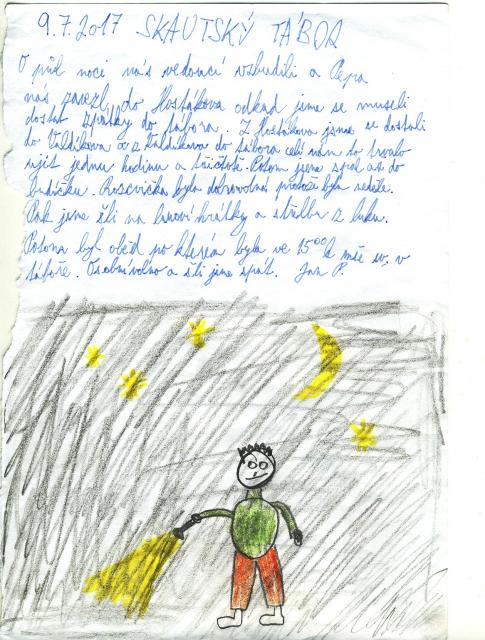 9.7.2017 SKAUTSKÝ TÁBOR
O půl noci nás vedoucí vzbudili a Pepa
nás zavezl do Hostákova odkad jsme se museli
dostat zpátky do tábora. Z Hostákova jsme se dostali
do Valdíkova a z Valdíkova do tábora celé nám to trvalo
ujít jednu hodinu a třičtvtě. Potom jsme spali až do
budíčku. Roscvička byla dobrovolná protože byla neděle.
Pak jsme šli na hrátky a střelba z luku.
Potom byl oběd po kterém byla ve 15⁰⁰h mše sv. v
táboře. Osobní volno a šli jsme spát. Jan P.